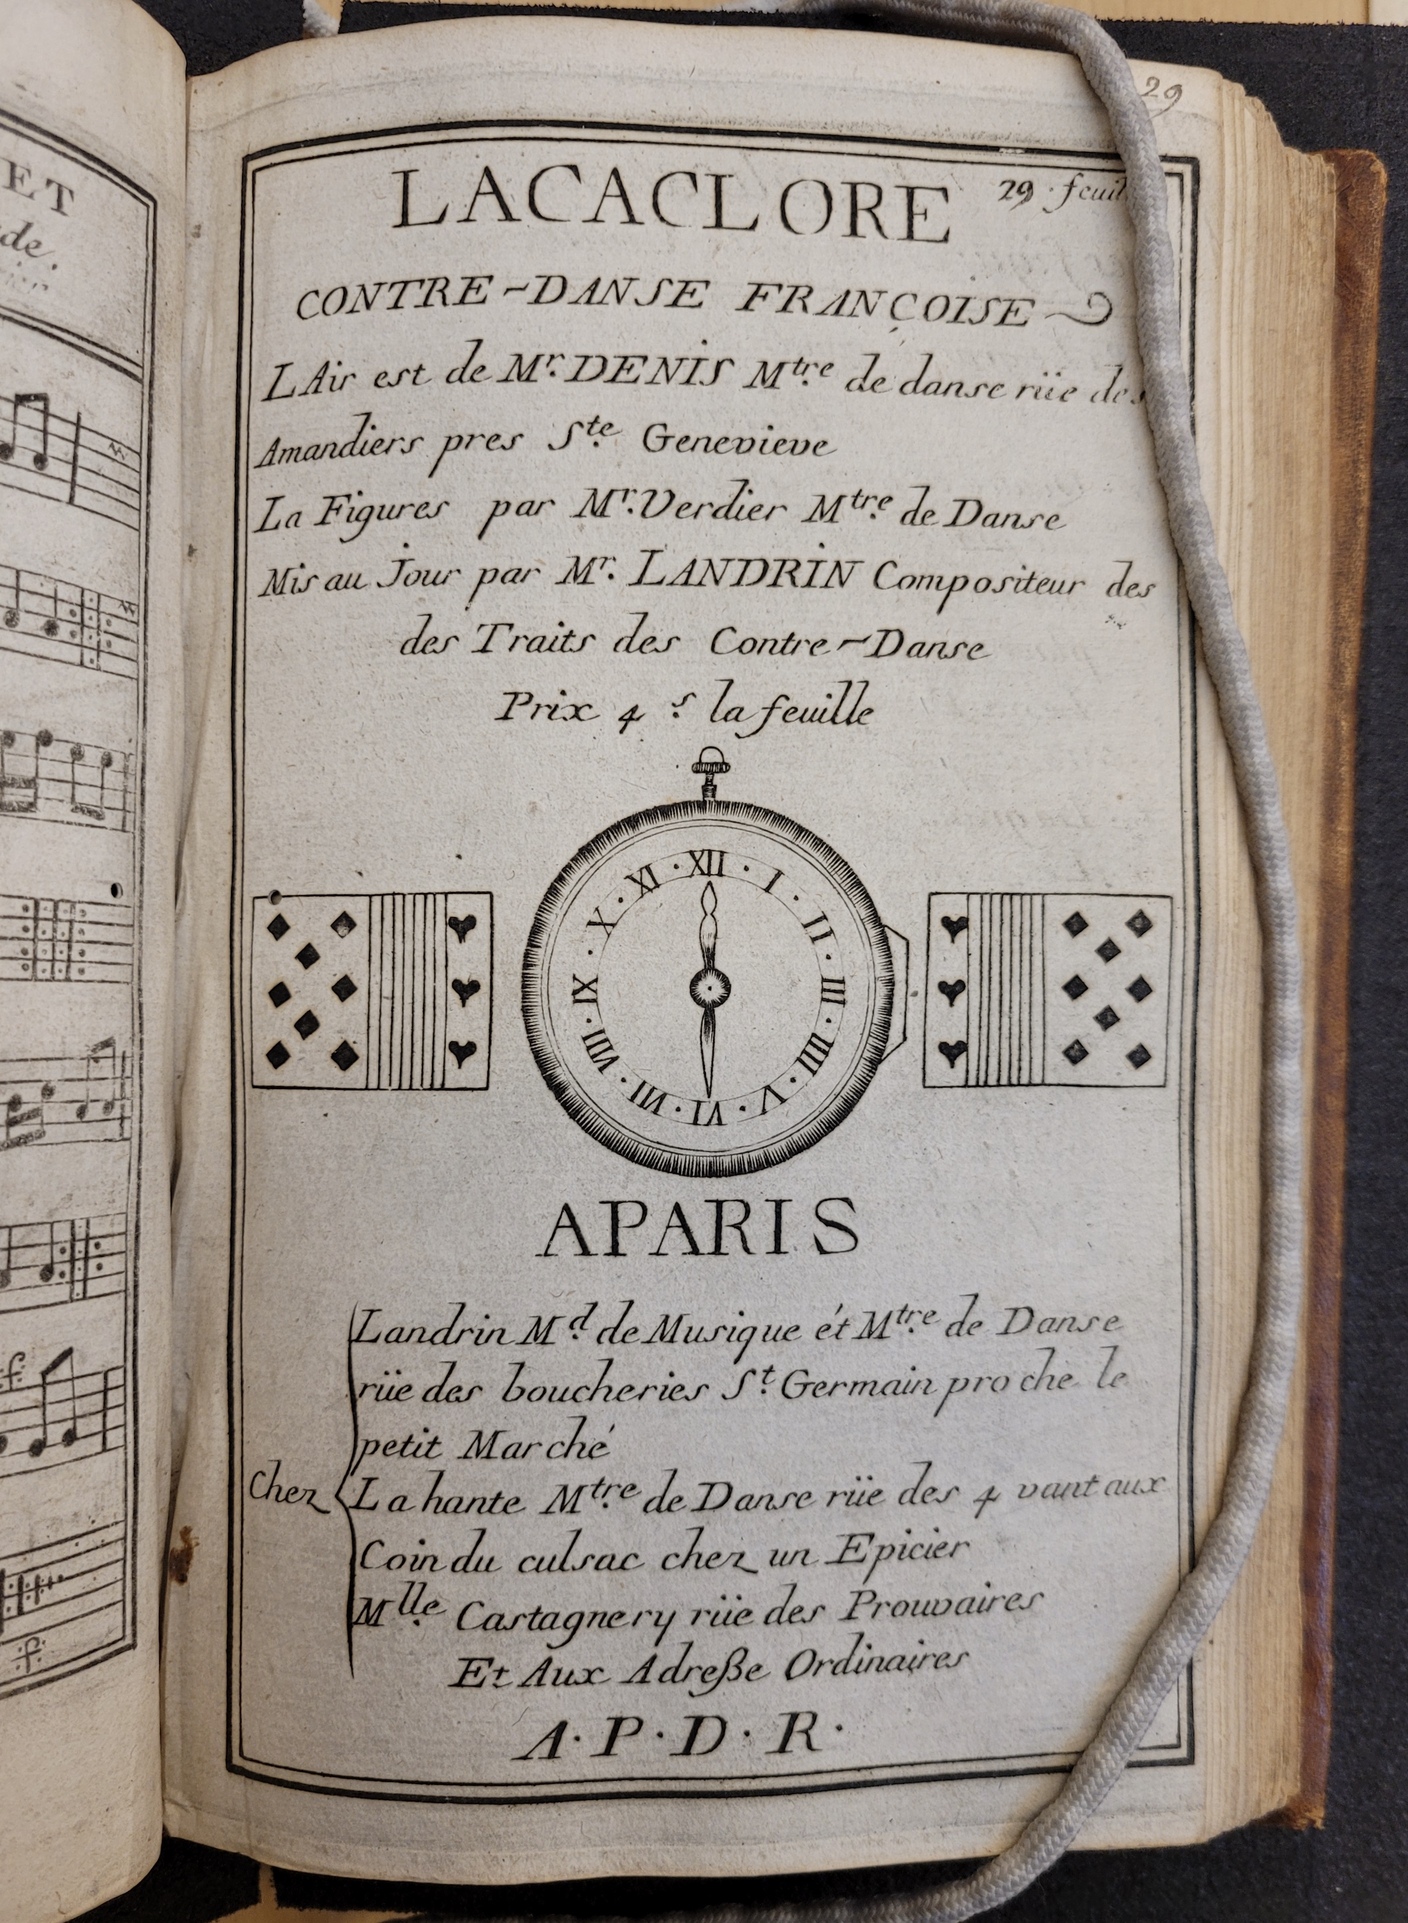 ET
de.
29
LACACLORE
29. feuil
CONTRE-DANSE FRANÇOISE
LAir est de Mr. DENIS Mtre. de danse rüe des
Amandiers pres Ste. Genevieve
La Figures par Mr. Verdier Mtre. de Danse
Mis au Jour par Mr. LANDRIN Compositeur des
des Traits des Contre-Danse
Prix 4 s. la feuille
XII · I · II · III · IIII · V · VI · VII · VIII · IX · X · XI ·
APARIS
Landrin Md. de Musique ét Mtre. de Danse
rüe des boucheries St. Germain proche le
petit Marché
Chez La hante Mtre. de Danse rüe des 4 vantaux
Coin du culsac chez un Epicier
Mlle. Castagnery rüe des Prouvaires
Et Aux Adreße Ordinaires
A. P. D. R.